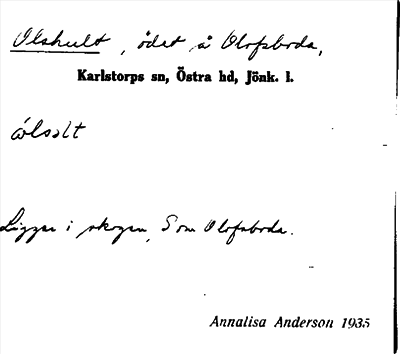 Olshult, ödet å Olofsboda,
Karlstorps sn, Östra hd, Jönk. l.
Ligger i skogen, S om Olofsboda.
Annalisa Anderson 1935